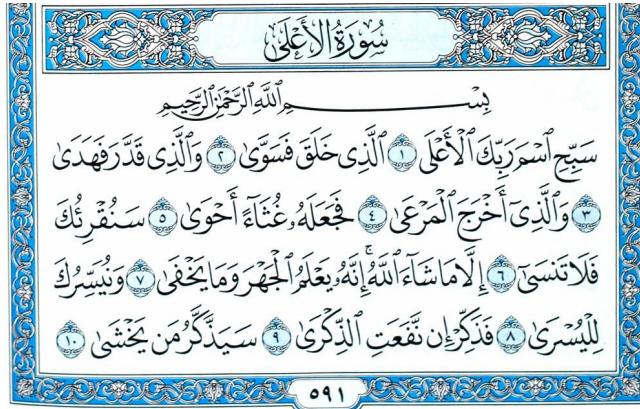 سُورَةُ الْأَعْلَىٰ
بِسْمِ اللَّهِ الرَّحْمَٰنِ الرَّحِيمِ
سَبِّحِ اسْمَ رَبِّكَ الْأَعْلَى ١ الَّذِي خَلَقَ فَسَوَّىٰ ٢ وَالَّذِي قَدَّرَ فَهَدَىٰ
٣ وَالَّذِي أَخْرَجَ الْمَرْعَىٰ ٤ فَجَعَلَهُ غُثَاءً أَحْوَىٰ ٥ سَنُقْرِئُكَ
فَلَا تَنسَىٰ ٦ إِلَّا مَا شَاءَ اللَّهُ ۚ إِنَّهُ يَعْلَمُ الْجَهْرَ وَمَا يَخْفَىٰ ٧ وَنُيَسِّرُكَ
لِلْيُسْرَىٰ ٨ فَذَكِّرْ إِن نَّفَعَتِ الذِّكْرَىٰ ٩ سَيَذَّكَّرُ مَن يَخْشَىٰ ١٠
٥٩١